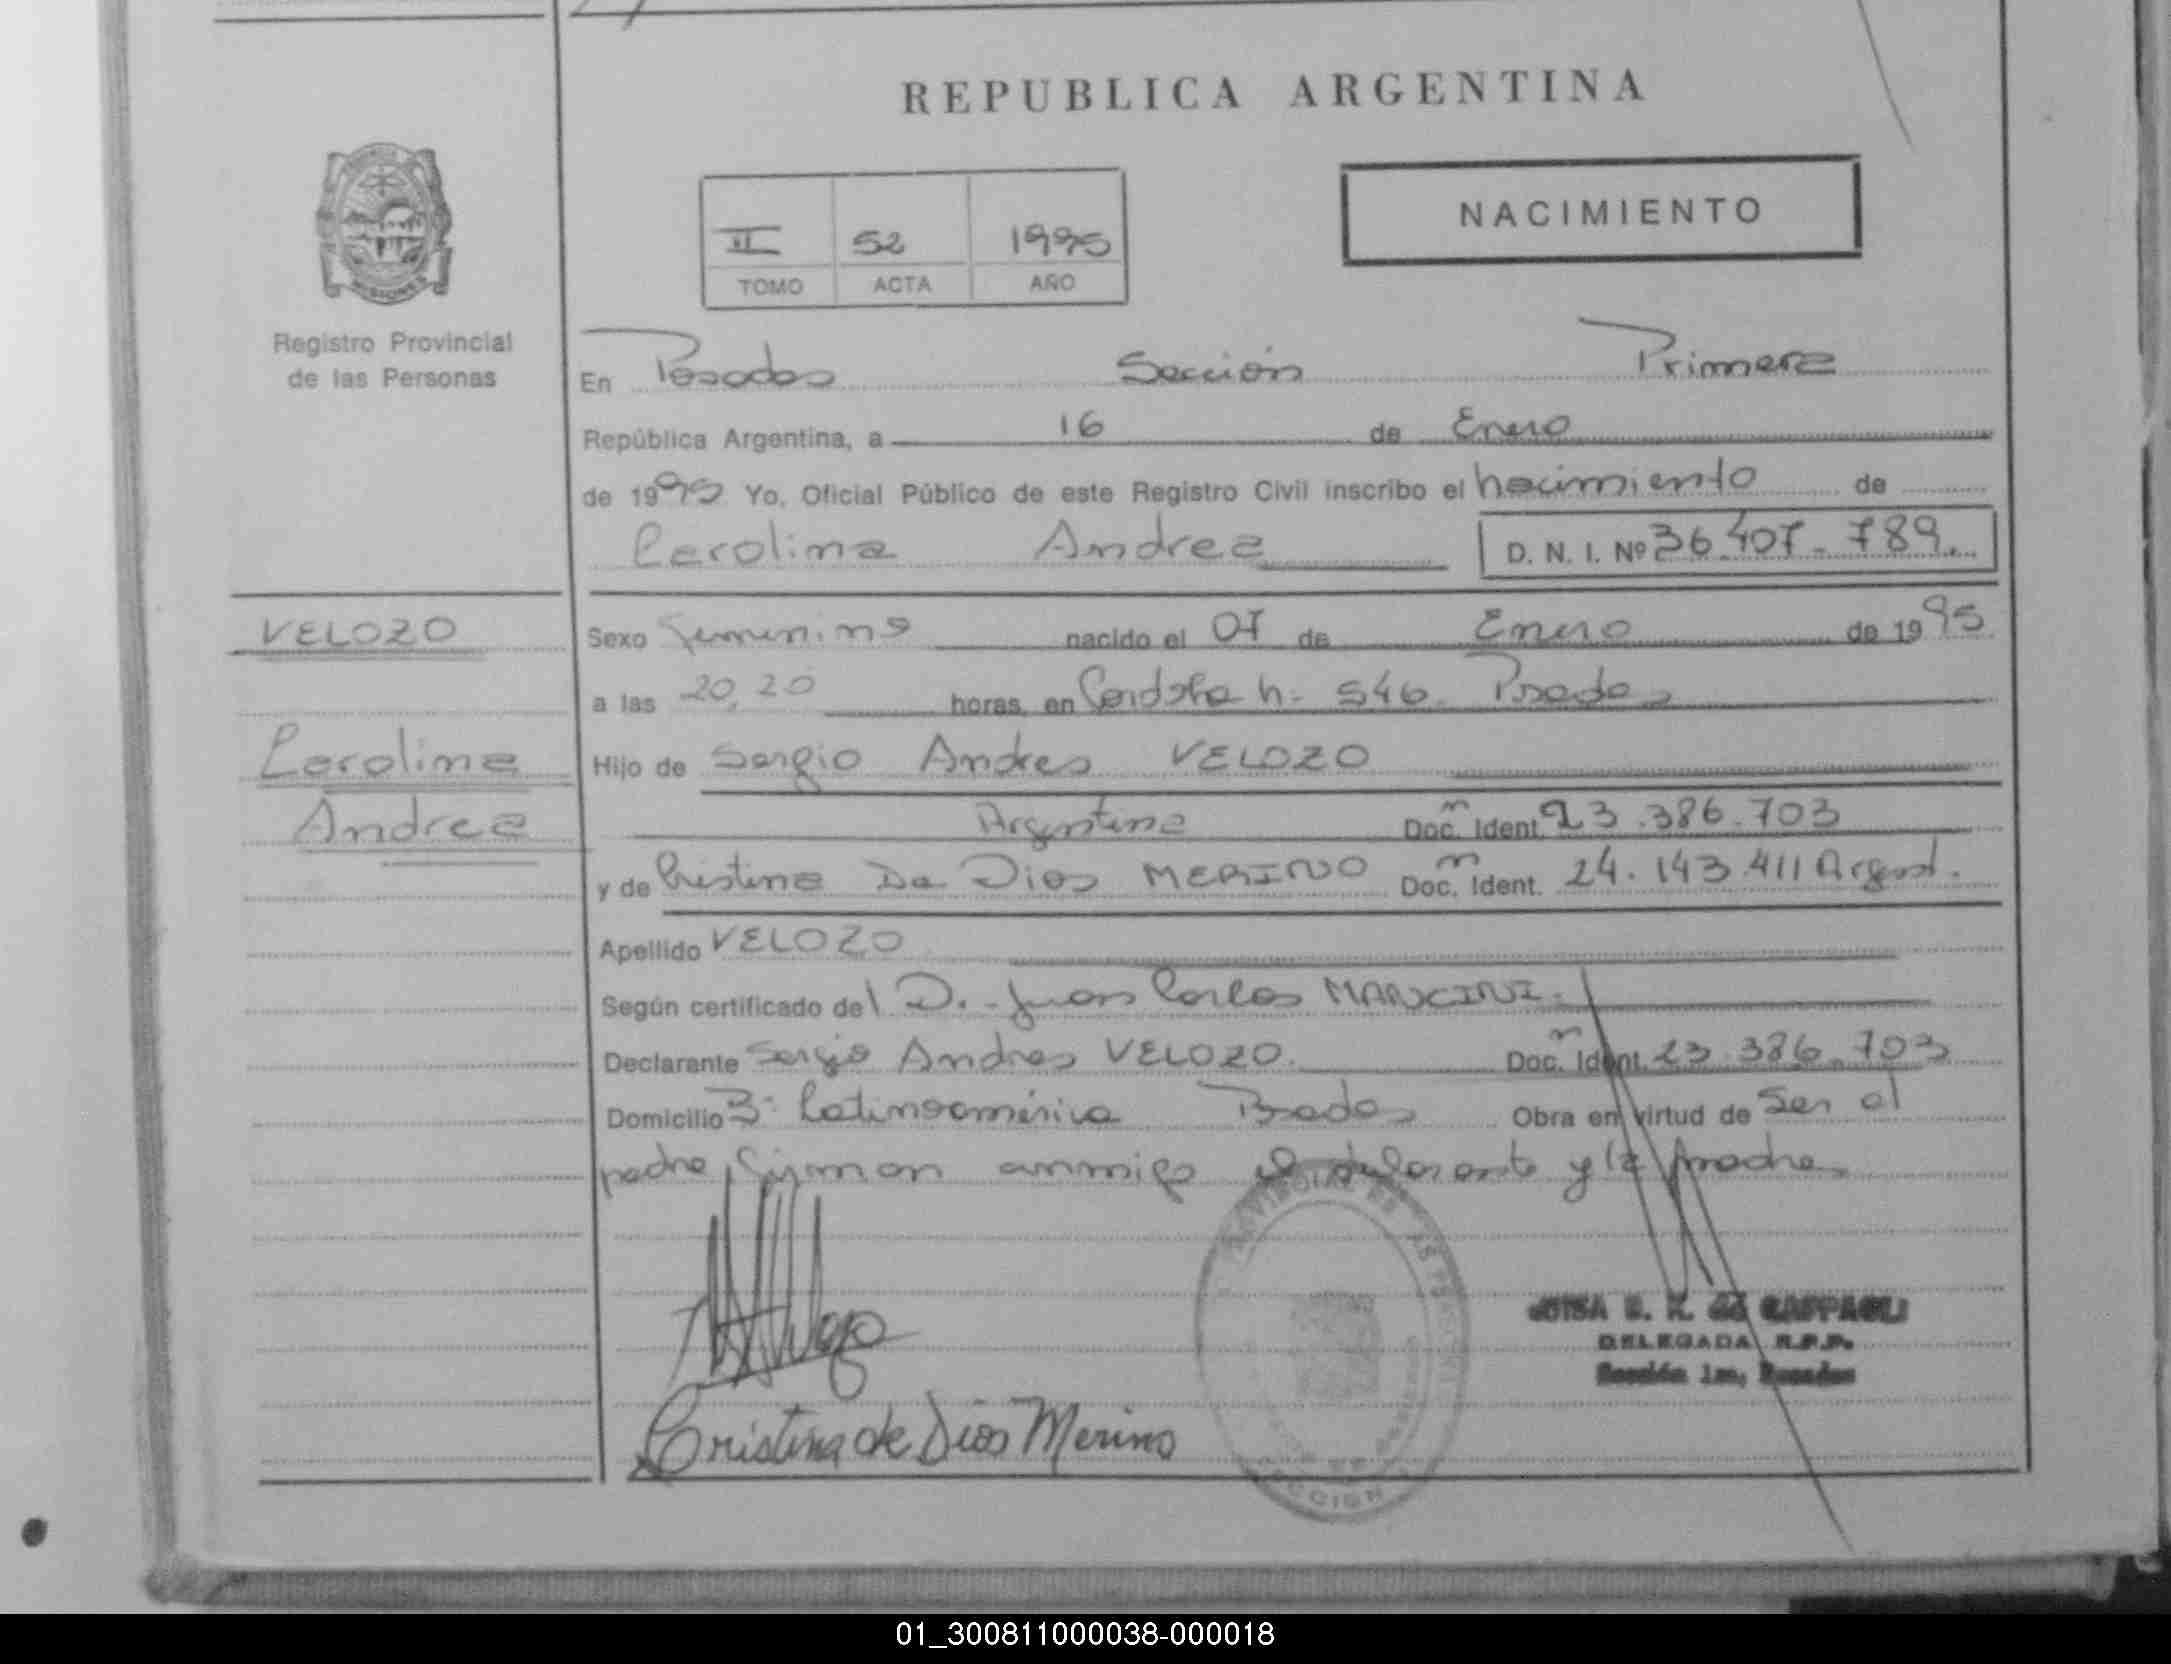 REPUBLICA ARGENTINA
NACIMIENTO
II 52 1995
TOMO ACTA AÑO
MISIONES
Registro Provincial
de las Personas
En Posadas Sección Primera
República Argentina, a 16 de Enero
de 1995 Yo, Oficial Público de este Registro Civil inscribo el nacimiento de
Carolina Andrea D. N. I. Nº 36.407.789.
VELOZO
Carolina
Andrea
Sexo Femenino nacido el 07 de Enero de 1995
a las 20,20 horas, en Córdoba n- 546. Posadas
Hijo de Sergio Andres VELOZO
Argentina Doc. Ident. 23.386.703
y de Cristina De Dios MERINO Doc. Ident. 24.143.411 Argent.
Apellido VELOZO
Según certificado del D. Juan Carlos MANCINI.
Declarante Sergio Andres VELOZO. Doc. Ident. 23.386.703
Domicilio Bº Latinoamérica Posadas Obra en virtud de Ser el
padre, Firman conmigo el declarante y la madre
Cristina de Dios Merino
S. K. de GASPAROLI
DELEGADA R.P.P.
Sección 1ra, Posadas
SECCION
01_300811000038-000018